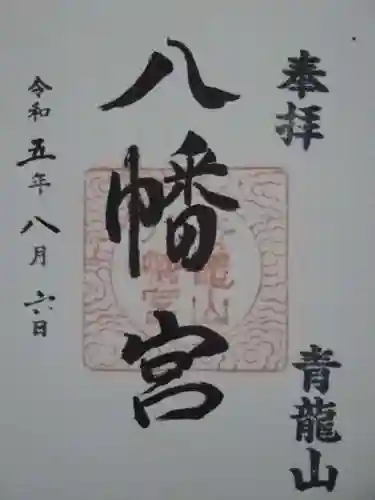 奉拝
青龍山
八幡宮
令和五年八月六日